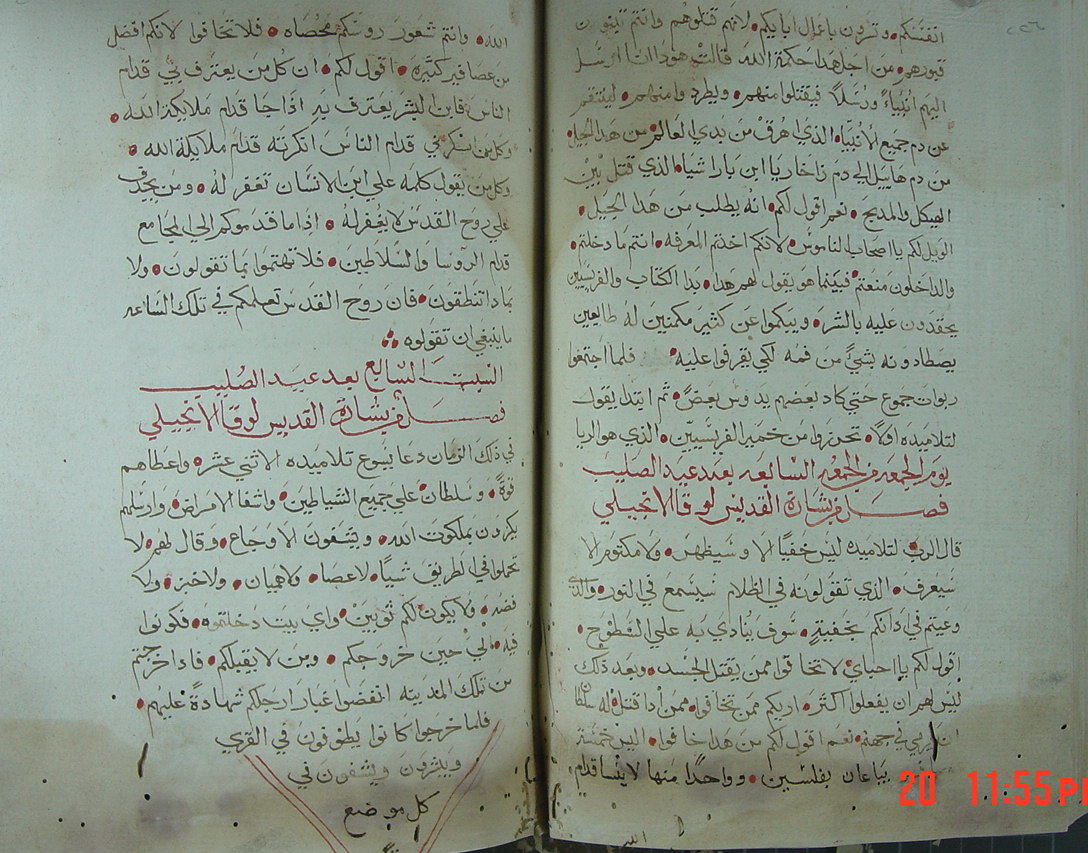 انفسكم وتسرون باعمال ابايكم لانهم قتلوهم وانتم تبنون
قبورهم من اجل هذا حكمة الله قالت هوذا انا ارسل
اليهم انبياءً ورسلاً فيقتلوا منهم ويطردوا منهم لينتقم
عن دم جميع الانبياء الذي اهرق من بدي العالم من هذا الجيل
من دم هابيل الي دم زاخاريا ابن باراشيا الذي قتل بين
الهيكل والمدبح نعم اقول لكم انه يطلب من هذا الجيل
الويل لكم يا اصحاب الناموس لانكم اخذتم المعرفه انتم ما دخلتم
والداخلون منعتم فبينما هو يقول لهم هذا بدا الكتاب والفريسيين
يحقدون عليه بالشر ويبكموا عن كثير مكمنين له طالبين
يصطادونه بشيً من فمه لكي يقرفوا عليه فلما اجتمعوا
ربوات جموع حتي كاد بعضهم يدوس بعضً ثم ابتدا يقول
لتلاميده اولاً تحرزوا من خمير الفريسيين الذي هو الريا
يوم الجمعه من الجمعه السابعه بعد عيد الصليب
فصل من بشارة القديس لوقا الانجيلي
قال الرب لتلاميده ليس خفيا الا وسيظهر ولا مكتوم الا
سيعرف الذي تقولونه في الظلام سيسمع في النور والذي
وعيتم في اذانكم بخفية سوف ينادي به علي السطوح
اقول لكم يا احباي لا تخافوا ممن يقتل الجسد وبعد ذلك
ليس لهم ان يفعلوا اكثر اريكم ممن تخافوا ممن اذا قتل له سلطان
ان يرمي في جهنم نعم اقول لكم من هذا خافوا اليس خمسة
يباعان بفلسين وواحدًا منها لا ينسا قدام
الله
الله وانتم شعور روسكم محصاه فلا تخافوا لانكم افضل
من عصافير كثيرة اقول لكم ان كل من يعترف بي قدام
الناس فابن البشر يعترف به اذا جا قدام ملايكة الله
وكل من ينكرني قدام الناس انكرته قدام ملايكة الله
وكل من يقول كلمه علي ابن الانسان تغفر له ومن يجدف
علي روح القدس لا يغفر له اذا ما قدموكم الي المجامع
قدام الروسا والسلاطين فلا تهتموا بما تقولون ولا
بماذا تنطقون فان روح القدس تعلمكم في تلك الساعه
ما ينبغي ان تقولوه
السبت السابع بعد عيد الصليب
فصل من بشارة القديس لوقا الانجيلي
في ذلك الزمان دعا يسوع تلاميده الاثني عشر واعطاهم
قوة وسلطان علي جميع الشياطين واشفا الامراض وارسلهم
يكرزون بملكوت الله ويشفون الاوجاع وقال لهم لا
تحملوا في الطريق شيا لا عصا ولا هميان ولا خبز ولا
فضه ولا يكون لكم ثوبين واي بيت دخلتموه فكونوا
فيه الي حين خروجكم ومن لا يقبلكم فاذا خرجتم
من تلك المدينه انفضوا غبار ارجلكم شهادة عليهم
فلما خرجوا كانوا يطوفون في القري
ويبشرون ويشفون في
كل موضع
20 11:55 PM